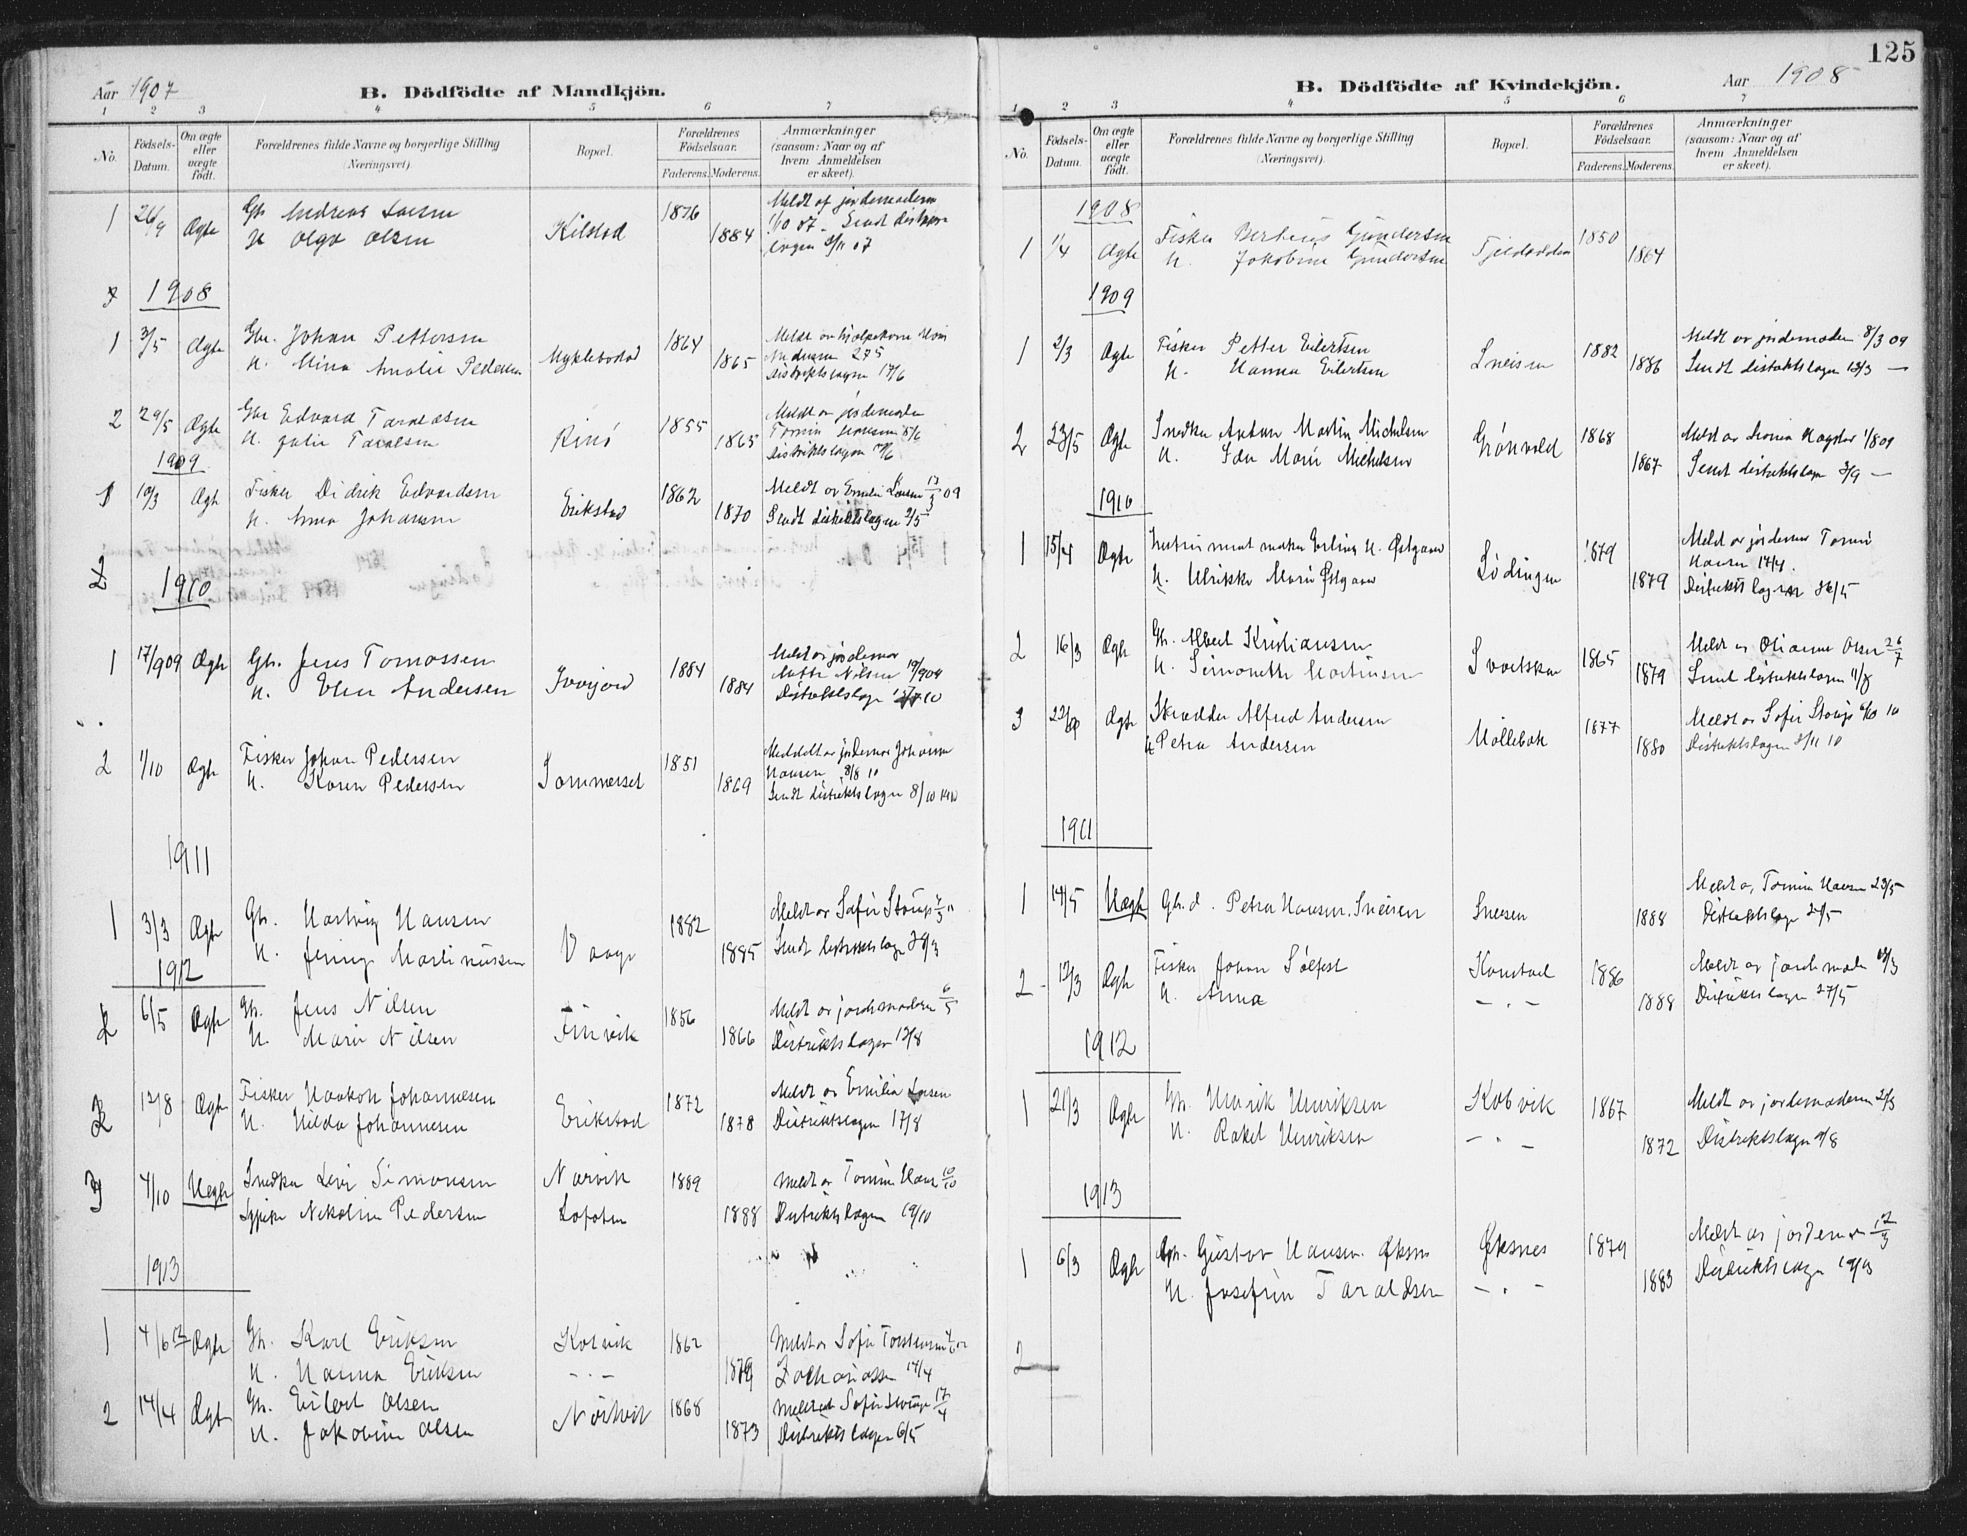 Aar 1907
B. Dödfödte af Mandkjön.
1 2 3 4 5 6 7
No.
Födsels-Datum.
Om ægte eller uægte födt.
Forældrenes fulde Navne og borgerlige Stilling (Næringsvei).
Bopæl.
Forældrenes Födselsaar.
Faderens. Moderens.
Anmærkninger (saasom: Naar og af hvem Anmeldelsen er skeet).
1 26/9 Ægte Gbr Andreas Larsen Kilstad 1876 Meldt af jordemoderen
H Olga Olsen 1884 1/10 07. Sendt distrikts
lægen 3/11 07
1908
1 3/5 Ægte Gbr. Johan Pettersen Myklebostad 1864
H. Mina Amalie Pedersen 1865 Andersen 27 5
Distriktslægen 17/6
2 29/5 Ægte Gbr Edvard Taraldsen Rinö 1855 Meldt av jordemoder
H. Julie Taralsen 1865
Distriktslægen
1909
1 10/3 Ægte Fisker Didrik Edvardsen Erikstad 1862 Meldt av Emilie Larsen 13/3 09
H. Anna Johansen 1870 Sendt distriktslægen 2/5
2 1910
1 17/9 09 Ægte Gbr. Jens Tomassen 1884 Meldt av jordemor
H. Elen Andersen 1884 Nilsen 19/9 09
Distriktslæge
2 1/10 Ægte Fisker Johan Pedersen Sommerset 1851 Meddelt av jordemor Johanna
H. Karen Pedersen 1869 Hansen 8/8 10
Sendt distriktslægen 8/10 1910
1911
1 3/3 Ægte Gbr. Hartvig Hansen 1882 Meldt av Sofie Storup
H. Jenny Martinussen 1885 Sendt distriktslæge 28/3
1912
6/5 Ægte Gbr. Jens Nilsen Finvik 1856 Meldt av jordemoderen 6/5
H. Marie Nilsen 1866 Distriktslægen 12/8
12/8 Ægte Fisker Haakon Johannesen Erikstad 1872 Meldt av Emilie Larsen
H. Hilda Johannesen 1878 Distriktslægen 17/8
3 4/10 Uegte Snedker Levi Simonsen Narvik 1889 Meldt av Tomine Hans 10/10
Nikoline Pedersen Lofoten 1888 Distriktslægen 19/10
1913
1 4/6 12 Ægte Gbr. Karl Eriksen Kobvik 1862 Meldt av Sofie
H. Hanna Eriksen – " – 1879 Zachariassen 14/4
2 14/4 Ægte Gbr. Eilert Olsen 1868 Meldt ved Sofie Storup 17/4
H. Jakobine Olsen 1873 Distriktslægen 6/5
125
B. Dödfödte af Kvindekjön.
Aar 1908
1 2 3 4 5 6 7
No.
Födsels-Datum.
Om ægte eller uægte födt.
Forældrenes fulde Navne og borgerlige Stilling (Næringsvei).
Bopæl.
Forældrenes Födselsaar.
Faderens. Moderens.
Anmærkninger (saasom: Naar og af hvem Anmeldelsen er skeet).
1908
1 1/4 Ægte Fisker Gundersen 1850
H. Jakobine Gundersen 1864
1909
1 2/3 Ægte Fisker Petter Eilertsen Sneisen 1882 Meldt av jordemoderen 8/3 09
H. Hanna Eilertsen 1886 Sendt distriktslægen 12/3 —
2 23/5 Ægte Snedker Anton Martin Michelsen Grönvold 1868 Meldt av 1/8 09
H. Marie Michelsen 1867 Sendt distriktslæge 3/9 —
1910
1 15/4 Ægte Instrumentmaker Erling H. Østgaard Lödingen 1879 Meldt av jordemor Tomine
H. Ulrikke Marie Østgaard 1879 Hansen 17/4.
Distriktslægen 26/5
2 16/3 Ægte Gbr. Albert Kristiansen 1865 Meldt av Olianna Olsen 26/7
H. Simonette Martinsen 1879 Sendt distriktslægen 11/8
3 Ægte Skrædder Alfred Andersen Möllebak 1877 Meldt av Sofie Storup 10
H Petra Andersen 1880 Distriktslægen 3/11 10
1911
1 14/5 Uægte Gb.d. Petra Hansen. Sneisen Sneisen 1888 Meldt av Tomine Hansen 23/5
Distriktslæge
2 12/3 Ægte Fisker Johan Sölfest 1886 Meldt av jordemoder
H. Anna – " – 1888 Distriktslægen 27/5
1912
1 21/3 Ægte Gbr. Henrik Henriksen Kobvik 1867 Meldt av jordemoderen
H. Rakel Henriksen – " – 1872 Distriktslægen
1913
1 6/3 Ægte Gbr. Gustav Hansen. Øksnes Øksnes 1879 Meldt av jordemor 12/3
H. Josefine Taraldsen – " – 1883 Distriktslægen
2